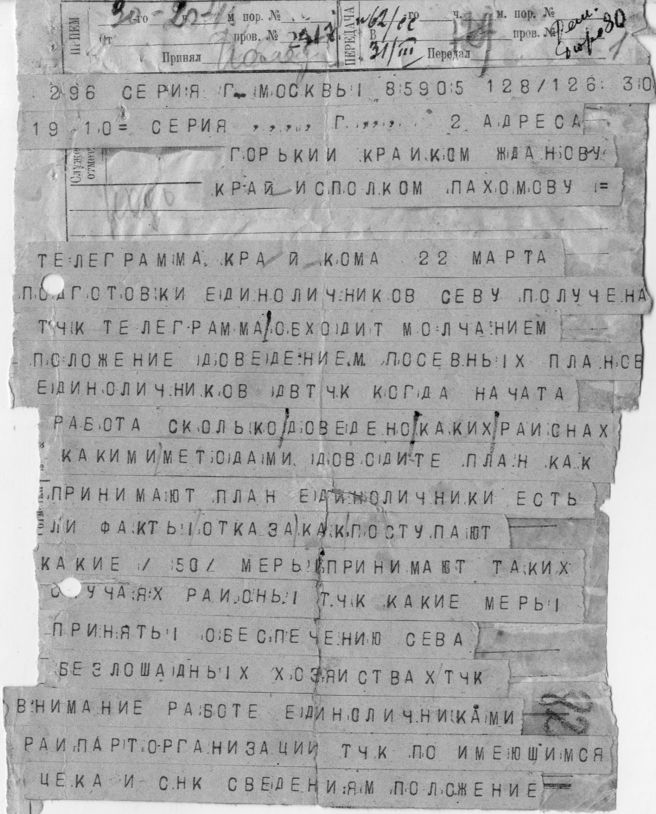 ПРИЕМ
го
м. пор. №
ПЕРЕДАЧА
го
ч.
м. пор. №
От
пров. №
В 31/III
пров. №
Принял
Передал
296 СЕРИЯ Г МОСКВЫ 85905 128/126 30
19 10= СЕРИЯ ,,,,, Г ,,,,, 2 АДРЕСА
ГОРЬКИЙ КРАЙКОМ ЖДАНОВУ
КРАЙИСПОЛКОМ ПАХОМОВУ =
ТЕЛЕГРАММА КРАЙКОМА 22 МАРТА
ПОДГОТОВКИ ЕДИНОЛИЧНИКОВ СЕВУ ПОЛУЧЕНА
ТЧК ТЕЛЕГРАММА ОБХОДИТ МОЛЧАНИЕМ
ПОЛОЖЕНИЕ ДОВЕДЕНИЕМ ПОСЕВНЫХ ПЛАНОВ
ЕДИНОЛИЧНИКОВ ДВТЧК КОГДА НАЧАТА
РАБОТА СКОЛЬКО ДОВЕДЕНО КАКИХ РАЙОНАХ
КАКИМИ МЕТОДАМИ ДОВОДИТЕ ПЛАН КАК
ПРИНИМАЮТ ПЛАН ЕДИНОЛИЧНИКИ ЕСТЬ
ЛИ ФАКТЫ ОТКАЗА КАК ПОСТУПАЮТ
КАКИЕ /50/ МЕРЫ ПРИНИМАЮТ ТАКИХ
СЛУЧАЯХ РАЙОНЫ ТЧК КАКИЕ МЕРЫ
ПРИНЯТЫ ОБЕСПЕЧЕНИЮ СЕВА
БЕЗЛОШАДНЫХ ХОЗЯЙСТВАХ ТЧК
ВНИМАНИЕ РАБОТЕ ЕДИНОЛИЧНИКАМИ
РАЙПАРТОРГАНИЗАЦИЙ ТЧК ПО ИМЕЮЩИМСЯ
ЦЕКА И СНК СВЕДЕНИЯМ ПОЛОЖЕНИЕ